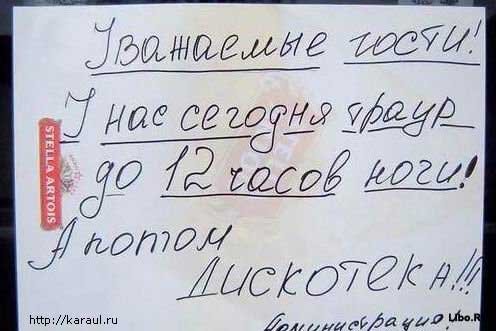 Уважаемые гости!
У нас сегодня траур
до 12 часов ночи!
А потом
Дискотека!!!
Администрация
STELLA ARTOIS
http://karaul.ru
Libo.R